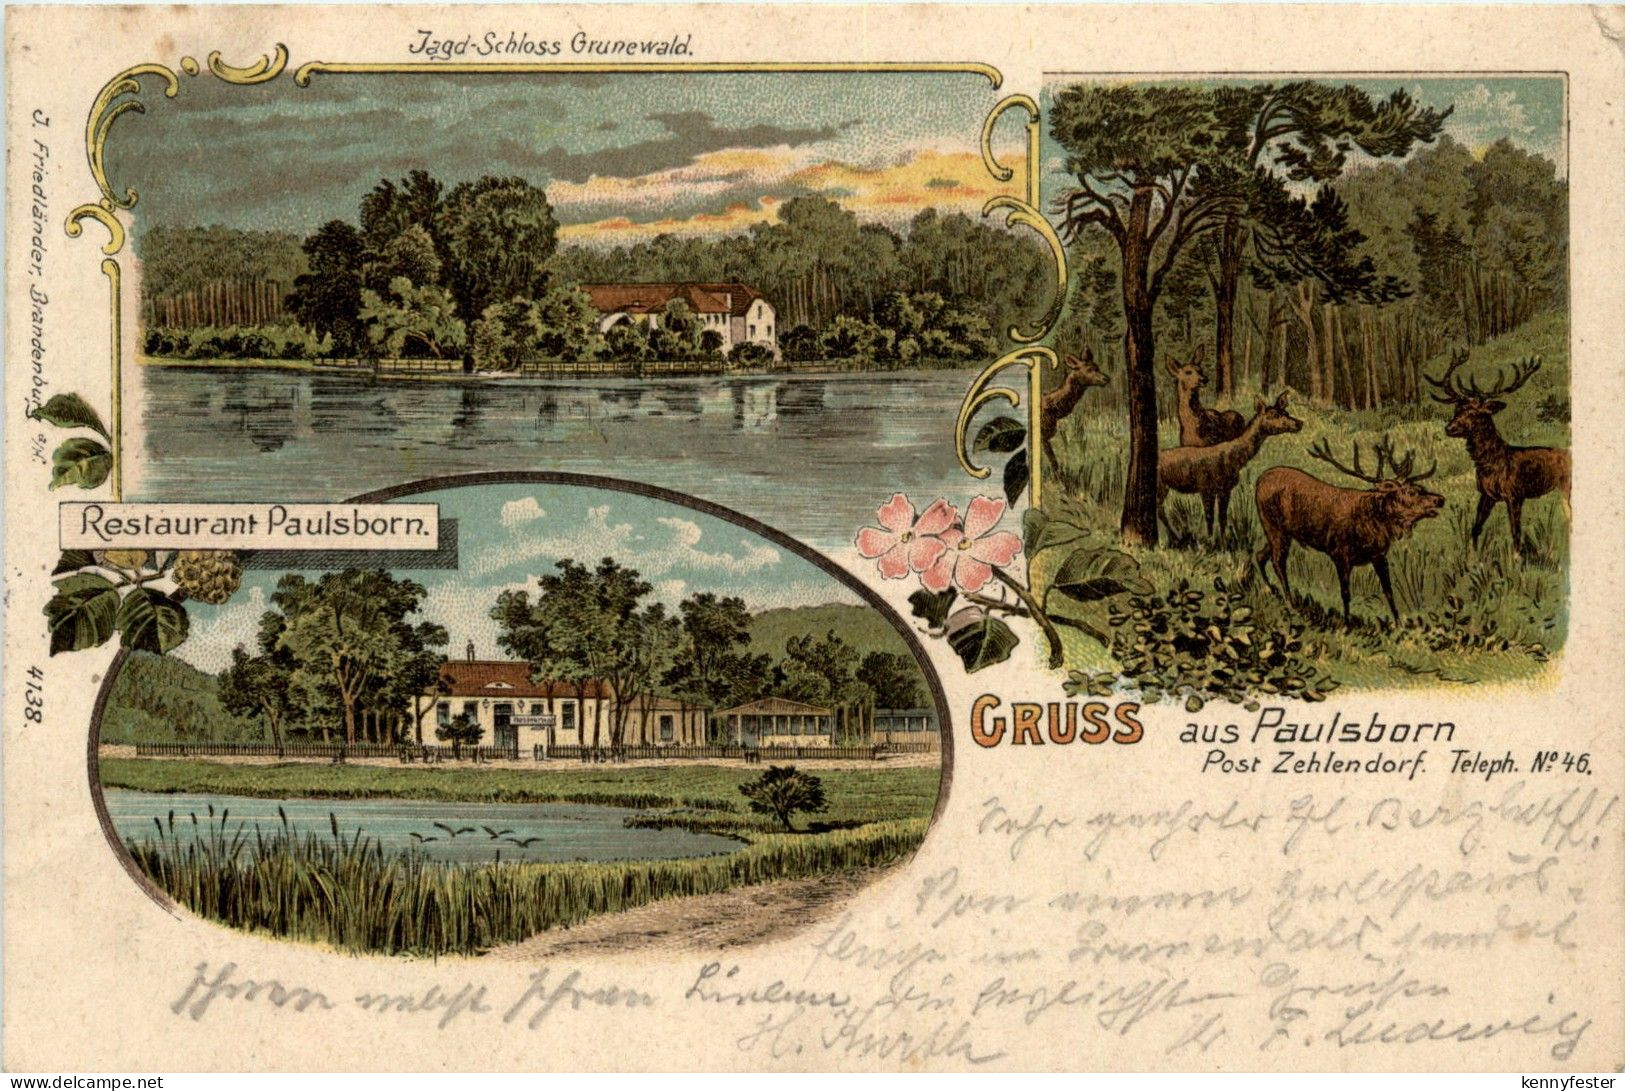 Jagd-Schloss Grunewald.
J. Friedländer, Brandenburg a/H.
4138.
Restaurant Paulsborn.
Restaurant
GRUSS aus Paulsborn
Post Zehlendorf. Teleph. No 46.
Sehr geehrter Hl. Berghoff!
Von einem Herbstaus-
fluge im Grunewald sendet
Ihnen nebst Ihren Lieben, die herzlichsten Grüße
H. Kurth F. Ludwig
delcampe.net
kennyfester